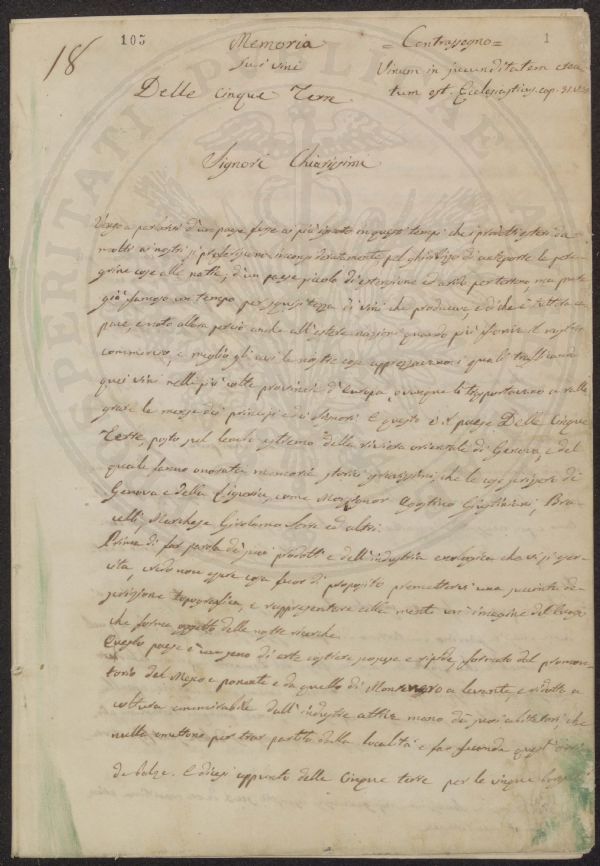 18
103
Memoria
su i vini
Delle cinque Terre
= Contrassegno =
1
Vinum in jucunditatem crea-
tum est. Ecclesiasticus cap. 31
Signori Chiarissimi
Vengo a parlarvi d'un paese forse ai più ignoto in questi tempi che
molti ai nostri si professano
grine cose alle natie, d'un paese piccolo di estensione ed arido per terreno, ma
già famoso un tempo per squisitezza di vini che produceva ed di che è tuttora ca-
pace, e noto allora perciò anche all'estere nazioni quando più fioriva il nostro
commercio, e meglio gli avi le nostre cose apprezzavano, i quali trafficando
quei vini nelle più colte provincie d'Europa, ovunque li trasportavano a ralle-
grare le mense dei principi e dei signori. E questo è il paese Delle Cinque
Terre, posto nel lembo estremo della riviera orientale di Genova, e del
quale fanno onorata memoria storici gravissimi, che le cose scrissero di
Genova e della Liguria, come Monsignor Agostino Giustiniani, Bra-
celli, Marchese Girolamo Serra ed altri.
Prima di far parola dei suoi prodotti e dell'industria enologica che vi si eser-
cita, credo non essere cosa fuor di proposito premettervi una succinta de-
scrizione topografica, e rappresentare alla mente un'immagine del luogo
che forma oggetto delle nostre ricerche.
Questo paese è un seno di erte costiere scoscese e ripide, formato dal promon-
torio del Mesco a ponente e da quello di Montenero a levante, e ridotto a
coltura ammirabile dall'industre attiva mano dei suoi abitatori, che
nulla omettono per trar partito dalla località e far feconde quegli
balze. E dicesi appunto delle Cinque terre per le cinque